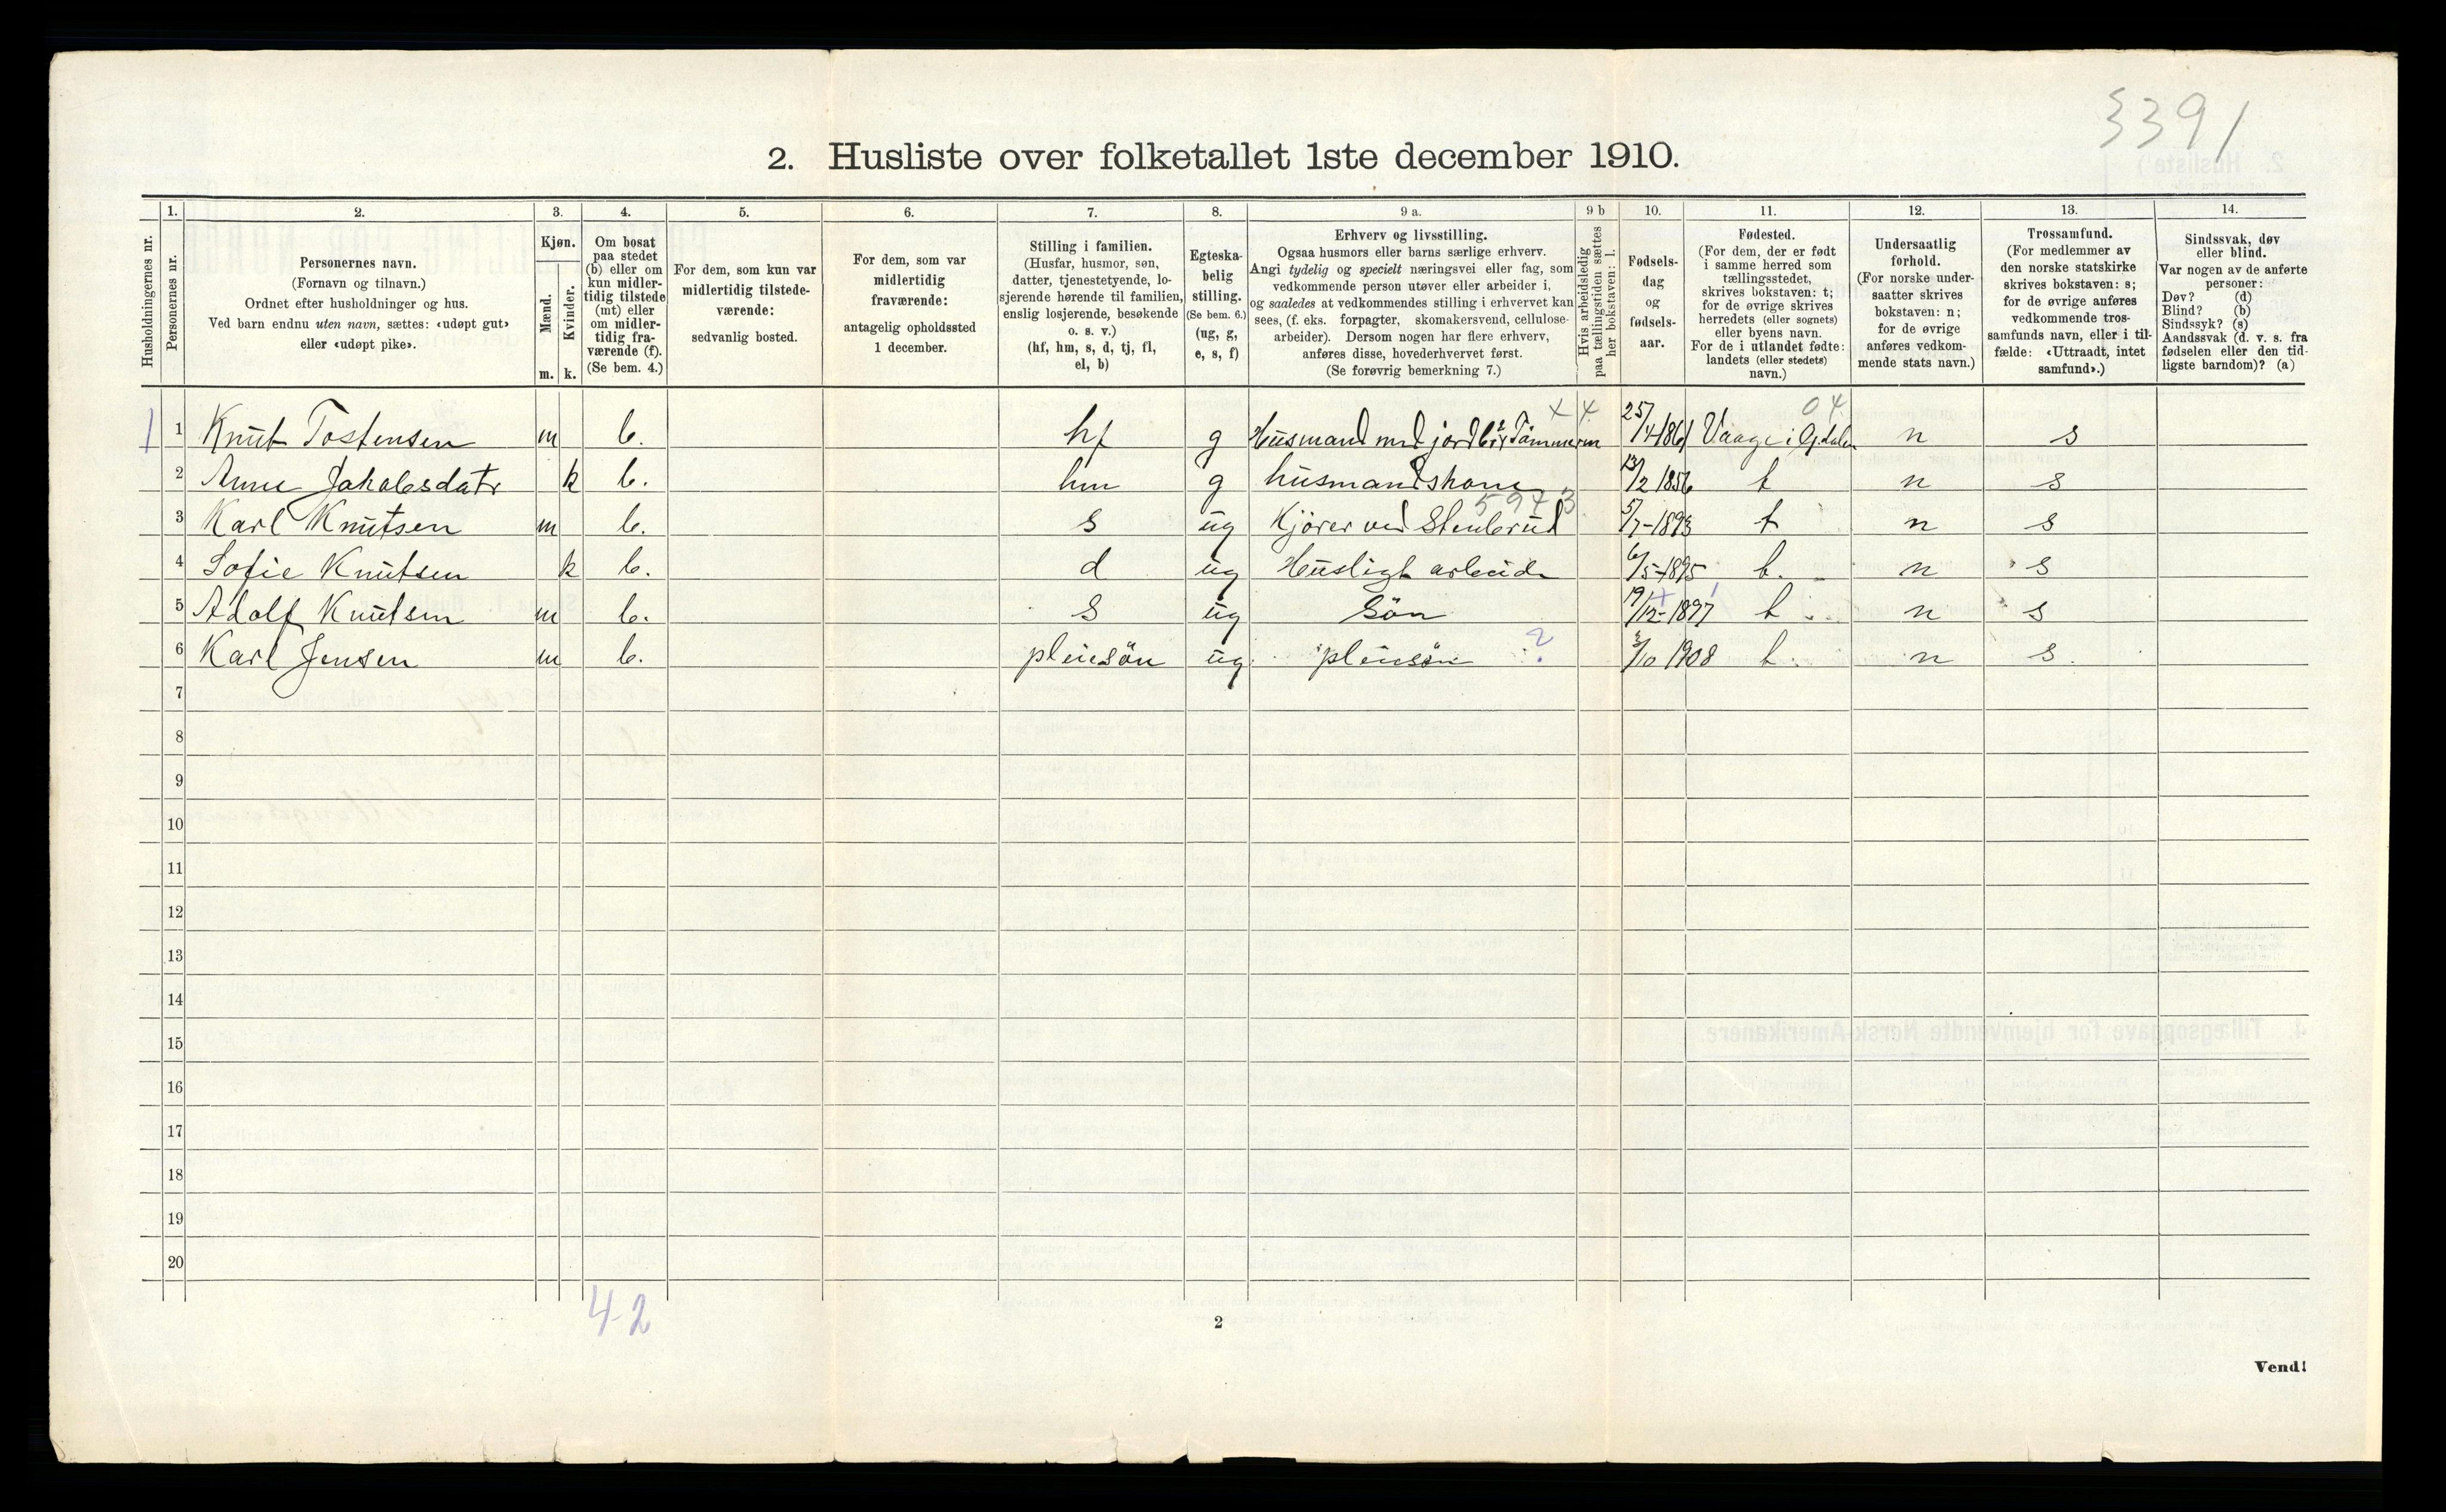 3391
2. Husliste over folketallet 1ste december 1910.
Husholdningernes nr.
1. 2. 3. 4. 5. 6. 7. 8. 9 a. 9 b 10. 11. 12. 13. 14.
Personernes nr.
Personernes navn.
(Fornavn og tilnavn.)
Ordnet efter husholdninger og hus.
Ved barn endnu uten navn, sættes: «udøpt gut»
eller «udøpt pike».
Kjøn.
Mænd.
Kvinder.
m. k.
Om bosat
paa stedet
(b) eller om
kun midler-
tidig tilstede
(mt) eller
om midler-
tidig fra-
værende (f).
(Se bem. 4.)
For dem, som kun var
midlertidig tilstede-
værende:
sedvanlig bosted.
For dem, som var
midlertidig
fraværende:
antagelig opholdssted
1 december.
Stilling i familien.
(Husfar, husmor, søn,
datter, tjenestetyende, lo-
sjerende hørende til familien,
enslig losjerende, besøkende
o. s. v.)
(hf, hm, s, d, tj, fl,
el, b)
Egteska-
belig
stilling.
(Se bem. 6.)
(ug, g,
e, s, f)
Erhverv og livsstilling.
Ogsaa husmors eller barns særlige erhverv.
Angi tydelig og specielt næringsvei eller fag, som
vedkommende person utøver eller arbeider i,
og saaledes at vedkommendes stilling i erhvervet kan
sees, (f. eks. forpagter, skomakersvend, cellulose-
arbeider). Dersom nogen har flere erhverv,
anføres disse, hovederhvervet først.
(Se forøvrig bemerkning 7.)
Hvis arbeidsledig
paa tællingstiden sættes
her bokstaven: l.
Fødsels-
dag
og
fødsels-
aar.
Fødested.
(For dem, der er født
i samme herred som
tællingsstedet,
skrives bokstaven: t;
for de øvrige skrives
herredets (eller sognets)
eller byens navn.
For de i utlandet fødte:
landets (eller stedets)
navn.)
Undersaatlig
forhold.
(For norske under-
saatter skrives
bokstaven: n;
for de øvrige
anføres vedkom-
mende stats navn.)
Trossamfund.
(For medlemmer av
den norske statskirke
skrives bokstaven: s;
for de øvrige anføres
vedkommende tros-
samfunds navn, eller i til-
fælde: «Uttraadt, intet
samfund».)
Sindssvak, døv
eller blind.
Var nogen av de anførte
personer:
Døv? (d)
Blind? (b)
Sindssyk? (s)
Aandssvak (d. v. s. fra
fødselen eller den tid-
ligste barndom)? (a)
x 4 04
1 1 Knut Tostensen m b. hf g Husmand med jord 25/4 1861 Vaage i n s
2 Anne Jakobsdatr k b. hm g husmandskone 13/2 1856 t n s
5943
3 Karl Knutsen m b. s ug Kjörer ved Stenberud 5/7-1893 t n s
4 Sofie Knutsen k b. d ug Husligt arbeide 6/5-1895 t. n s
5 Adolf Knutsen m b. s ug Sön 19/12-1897 t n s
6 Karl Jensen m b. pleiesön ug pleiesön ? 3/10 1908 t. n s.
7
8
9
10
11
12
13
14
15
16
17
18
19
20
4-2
2
Vend!